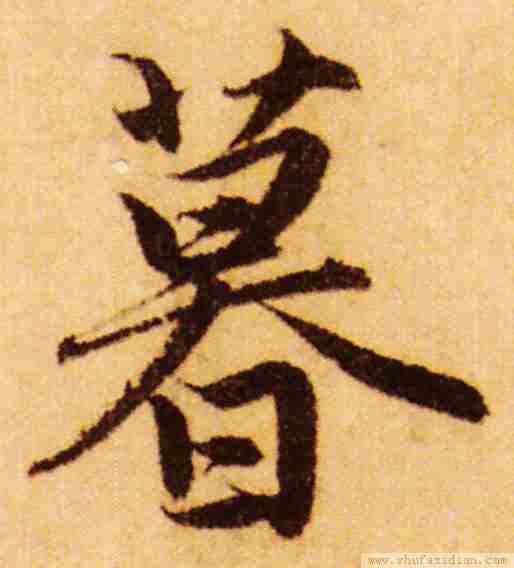 暮
www.shufazidian.com